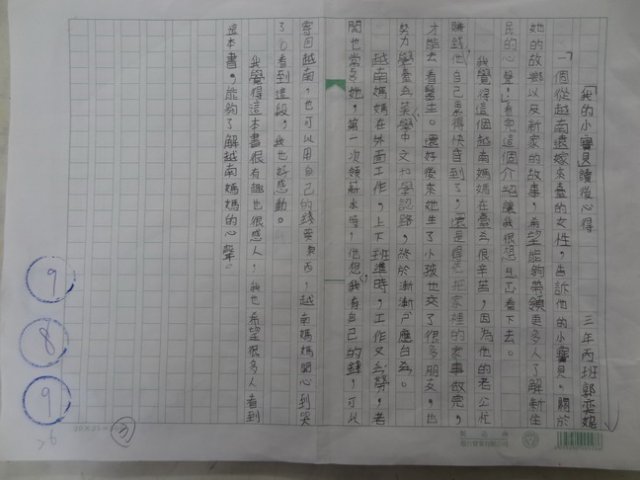 「我的小寶貝」讀後心得
三年丙班 郭
「一個從越南遠嫁來臺的女性,告訴他的小寶貝,關於
她的故鄉以及新家的故事,希望能夠帶領更多人了解新住
民的心聲」看完這個介紹讓我很想 看下去。
我覺得這個越南媽媽在臺 很辛苦,因為他的老公忙
賺錢,他自己累得快昏到了,還是得去把家裡的家事做完,
才能去看醫生。還好後來她生了小孩也交了很多朋友,也
努力學 菜、學中文和學認路,終於漸漸 應白 。
越南媽媽在外面工作,上下班準時,工作又 勞,老
闆也常 她,第一次領薪水時,他想「我有自己的錢,可以
寄回越南,也可以用自己的錢買東西,越南媽媽開心到哭
了。看到這段,我也好感動。
我覺得這本書很有趣也很感人,我也希望很多人看到
這本書,能夠了解越南媽媽的心聲。
9
8
9
26